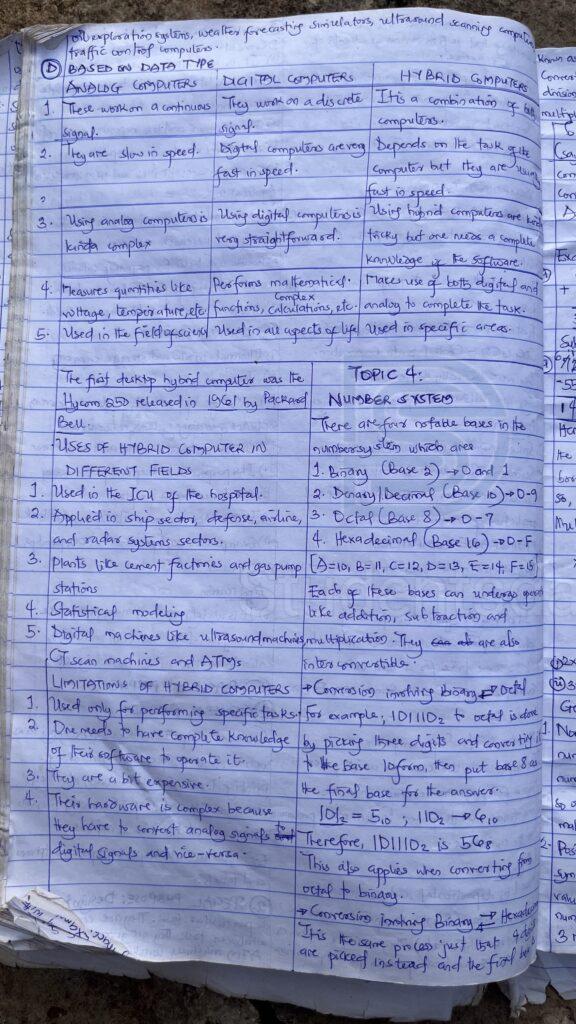 oil exploration systems, weather forecasting simulators, ultrasound scanning computers
traffic control computers.
D BASED ON DATA TYPE
ANALOG COMPUTERS
1. These work on a continuous
signal.
2. They are slow in speed.
3. Using analog computers is
kinda complex
4. Measures quantities like
voltage, temperature, etc.
5. Used in the field of science
DIGITAL COMPUTERS
They work on a discrete
signal.
Digital computers are very
fast in speed.
Using digital computers is
very straightforward.
Performs mathematical
functions, complex calculations, etc.
Used in all aspects of life
HYBRID COMPUTERS
It is a combination of both
computers.
Depends on the task of the
computer but they are usually
fast in speed.
Using hybrid computers are kinda
tricky but one needs a complete
knowledge of the software.
Makes use of both digital and
analog to complete the task.
Used in specific areas.
The first desktop hybrid computer was the
Hycom 250 released in 1961 by Packard
Bell.
USES OF HYBRID COMPUTER IN
DIFFERENT FIELDS
1. Used in the ICU of the hospital.
2. Applied in ship sector, defense, airline,
and radar systems sectors.
3. Plants like cement factories and gas pump
stations
4. Statistical modeling
5. Digital machines like ultrasound machines,
CT scan machines and ATMs
LIMITATIONS OF HYBRID COMPUTERS
1. Used only for performing specific tasks.
2. One needs to have complete knowledge
of their software to operate it.
3. They are a bit expensive.
4. Their hardware is complex because
they have to convert analog signals to
digital signals and vice-versa.
TOPIC 4:
NUMBER SYSTEM
There are four notable bases in the
number system which are:
1. Binary (Base 2) → 0 and 1.
2. Denary/Decimal (Base 10) → 0-9
3. Octal (Base 8) → 0-7
4. Hexadecimal (Base 16) → 0-F
[A=10, B=11, C=12, D=13, E=14, F=15]
Each of these bases can undergo
like addition, subtraction and
multiplication. They are also
interconvertible.
→ Conversion involving Binary ⇌ Octal
For example; 101110₂ to octal is done
by picking three digits and converting it
to the base 10 form, then put base 8 as
the final base for the answer.
101₂ = 5₁₀ ; 110₂ → 6₁₀
Therefore, 101110₂ is 56₈
This also applies when converting from
octal to binary.
→ Conversion involving Binary ⇌ Hexadecimal
It is the same process just that 4 digits
are picked instead and the final